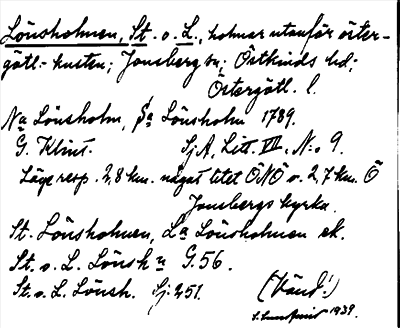 Lönsholmen, St. o. L., holmar utanför öster-
götl.-kusten; Jonsberg sn; Östkinds hd;
Östergötl. l.
Na Lönsholm, Sa Lönsholm 1789.
G. Klint. Sj.A, Litt. VII, N:o 9.
Läge resp. 2,8 km. något litet ÖNÖ o. 2,7 km. Ö
Jonsbergs kyrka.
St. Lönsholmen, La Lönsholmen ek.
St. o. L. Lönsh n G.56.
St. o. L. Lönsh. Sj. 251. (Vänd!)
1939.